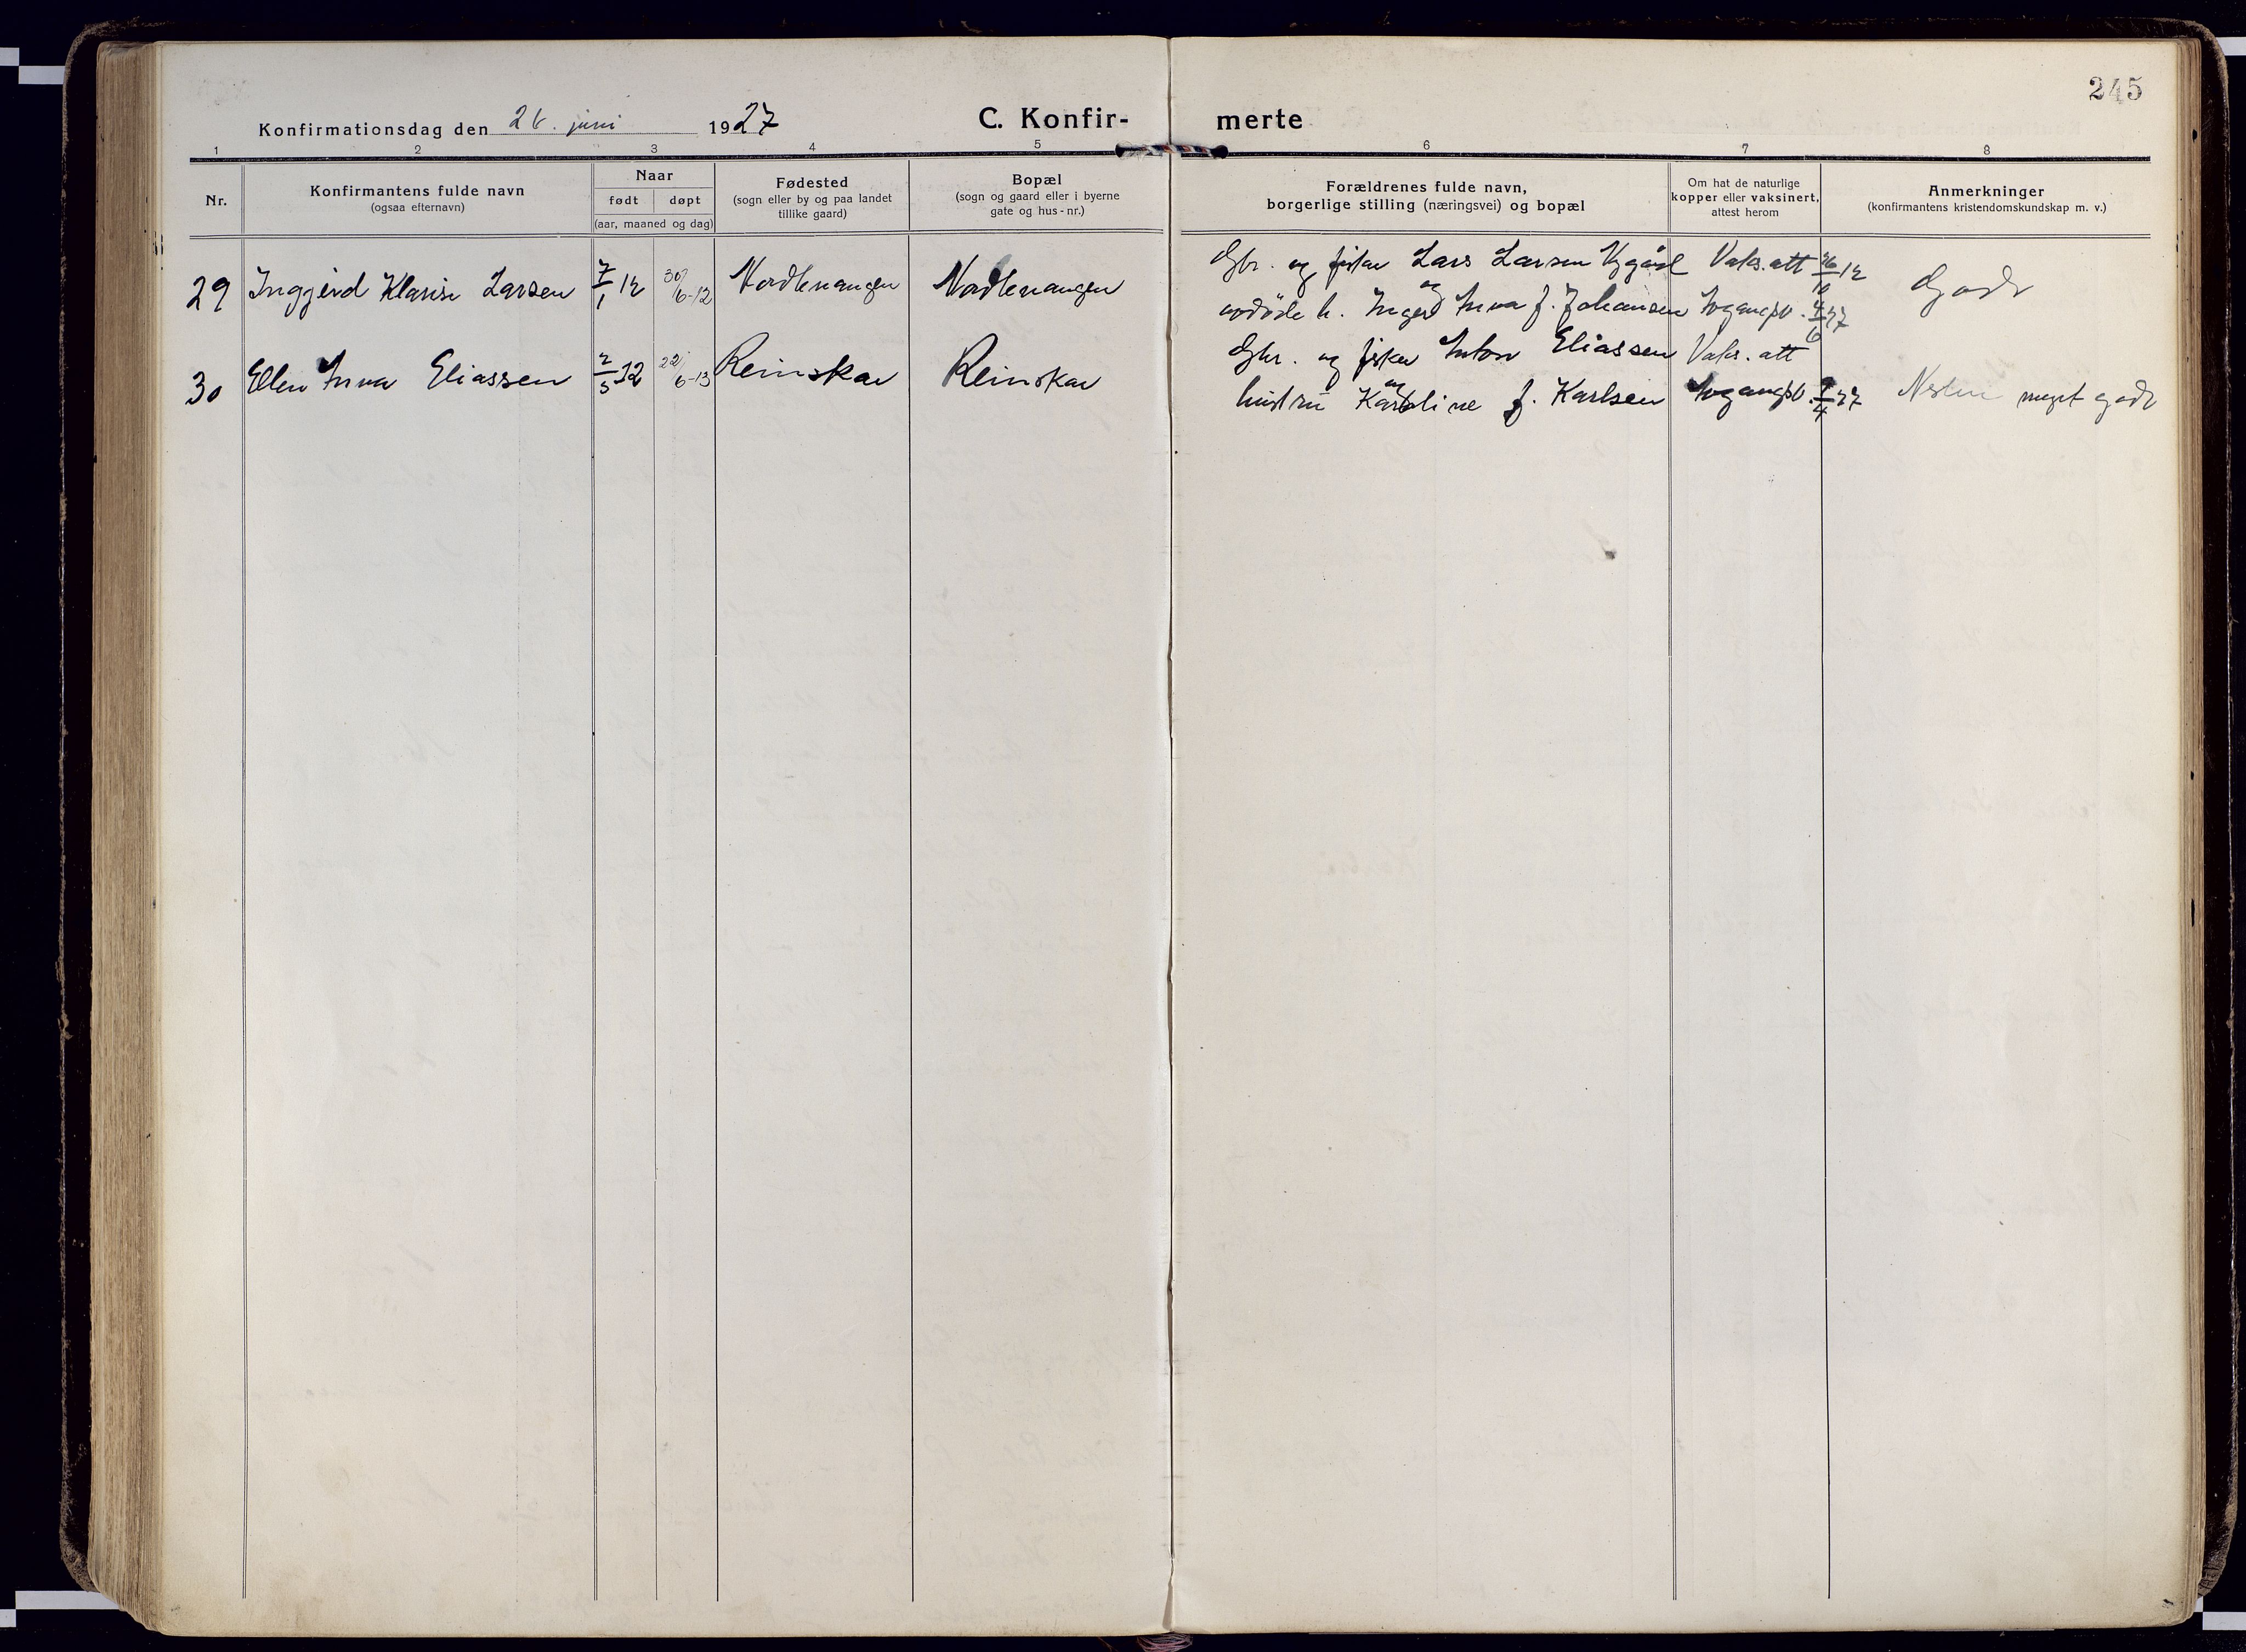 245
Konfirmationsdag den 26. juni 1927
C. Konfir-
merte
1 2 3 4 5 6 7 8
Nr.
Konfirmantens fulde navn
(ogsaa efternavn)
Naar
født
døpt
(aar, maaned og dag)
Fødested
(sogn eller by og paa landet
tillike gaard)
Bopæl
(sogn og gaard eller i byerne
gate og hus-nr.)
Forældrenes fulde navn,
borgerlige stilling (næringsvei) og bopæl
Om hat de naturlige
kopper eller vaksinert,
attest herom
Anmerkninger
(konfirmantens kristendomskundskap m. v.)
29 Inggjerd Klarise Larsen 7/1 12 30/6-12 Nordlenangen Nordlenangen
Gbr. og fisker Lars Larsen Nygård Vaks. att 26/10 12
og
avdöde h. Inger Anna f. Johansen Sogangsv. 4/6 27
Godt
30 Ellen Anna Eliassen 2/5 12 22/6-13 Reinskar Reinskar
Gbr. og fisker Anton Eliassen Vaks. att
og
hustru Karoline f. Karlsen Sogangsv. 9/4 27
Nesten meget godt